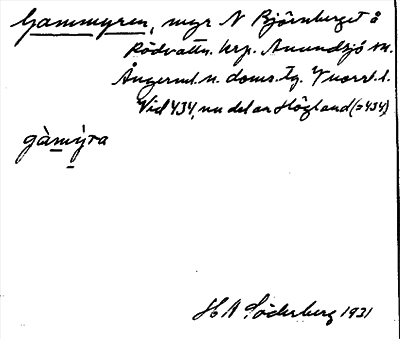 Gammyren, myr N Björnberget å
Rödvattn. krp. Anundsjö sn.
Ångerml. n. doms. tg. V norrl. l.
Vid 434, nu del av Högland (=434)
gàmýra
H A Söderberg 1931